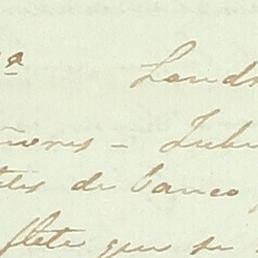 ª Londr
ñores – Zulu
tes de banco
flete que se